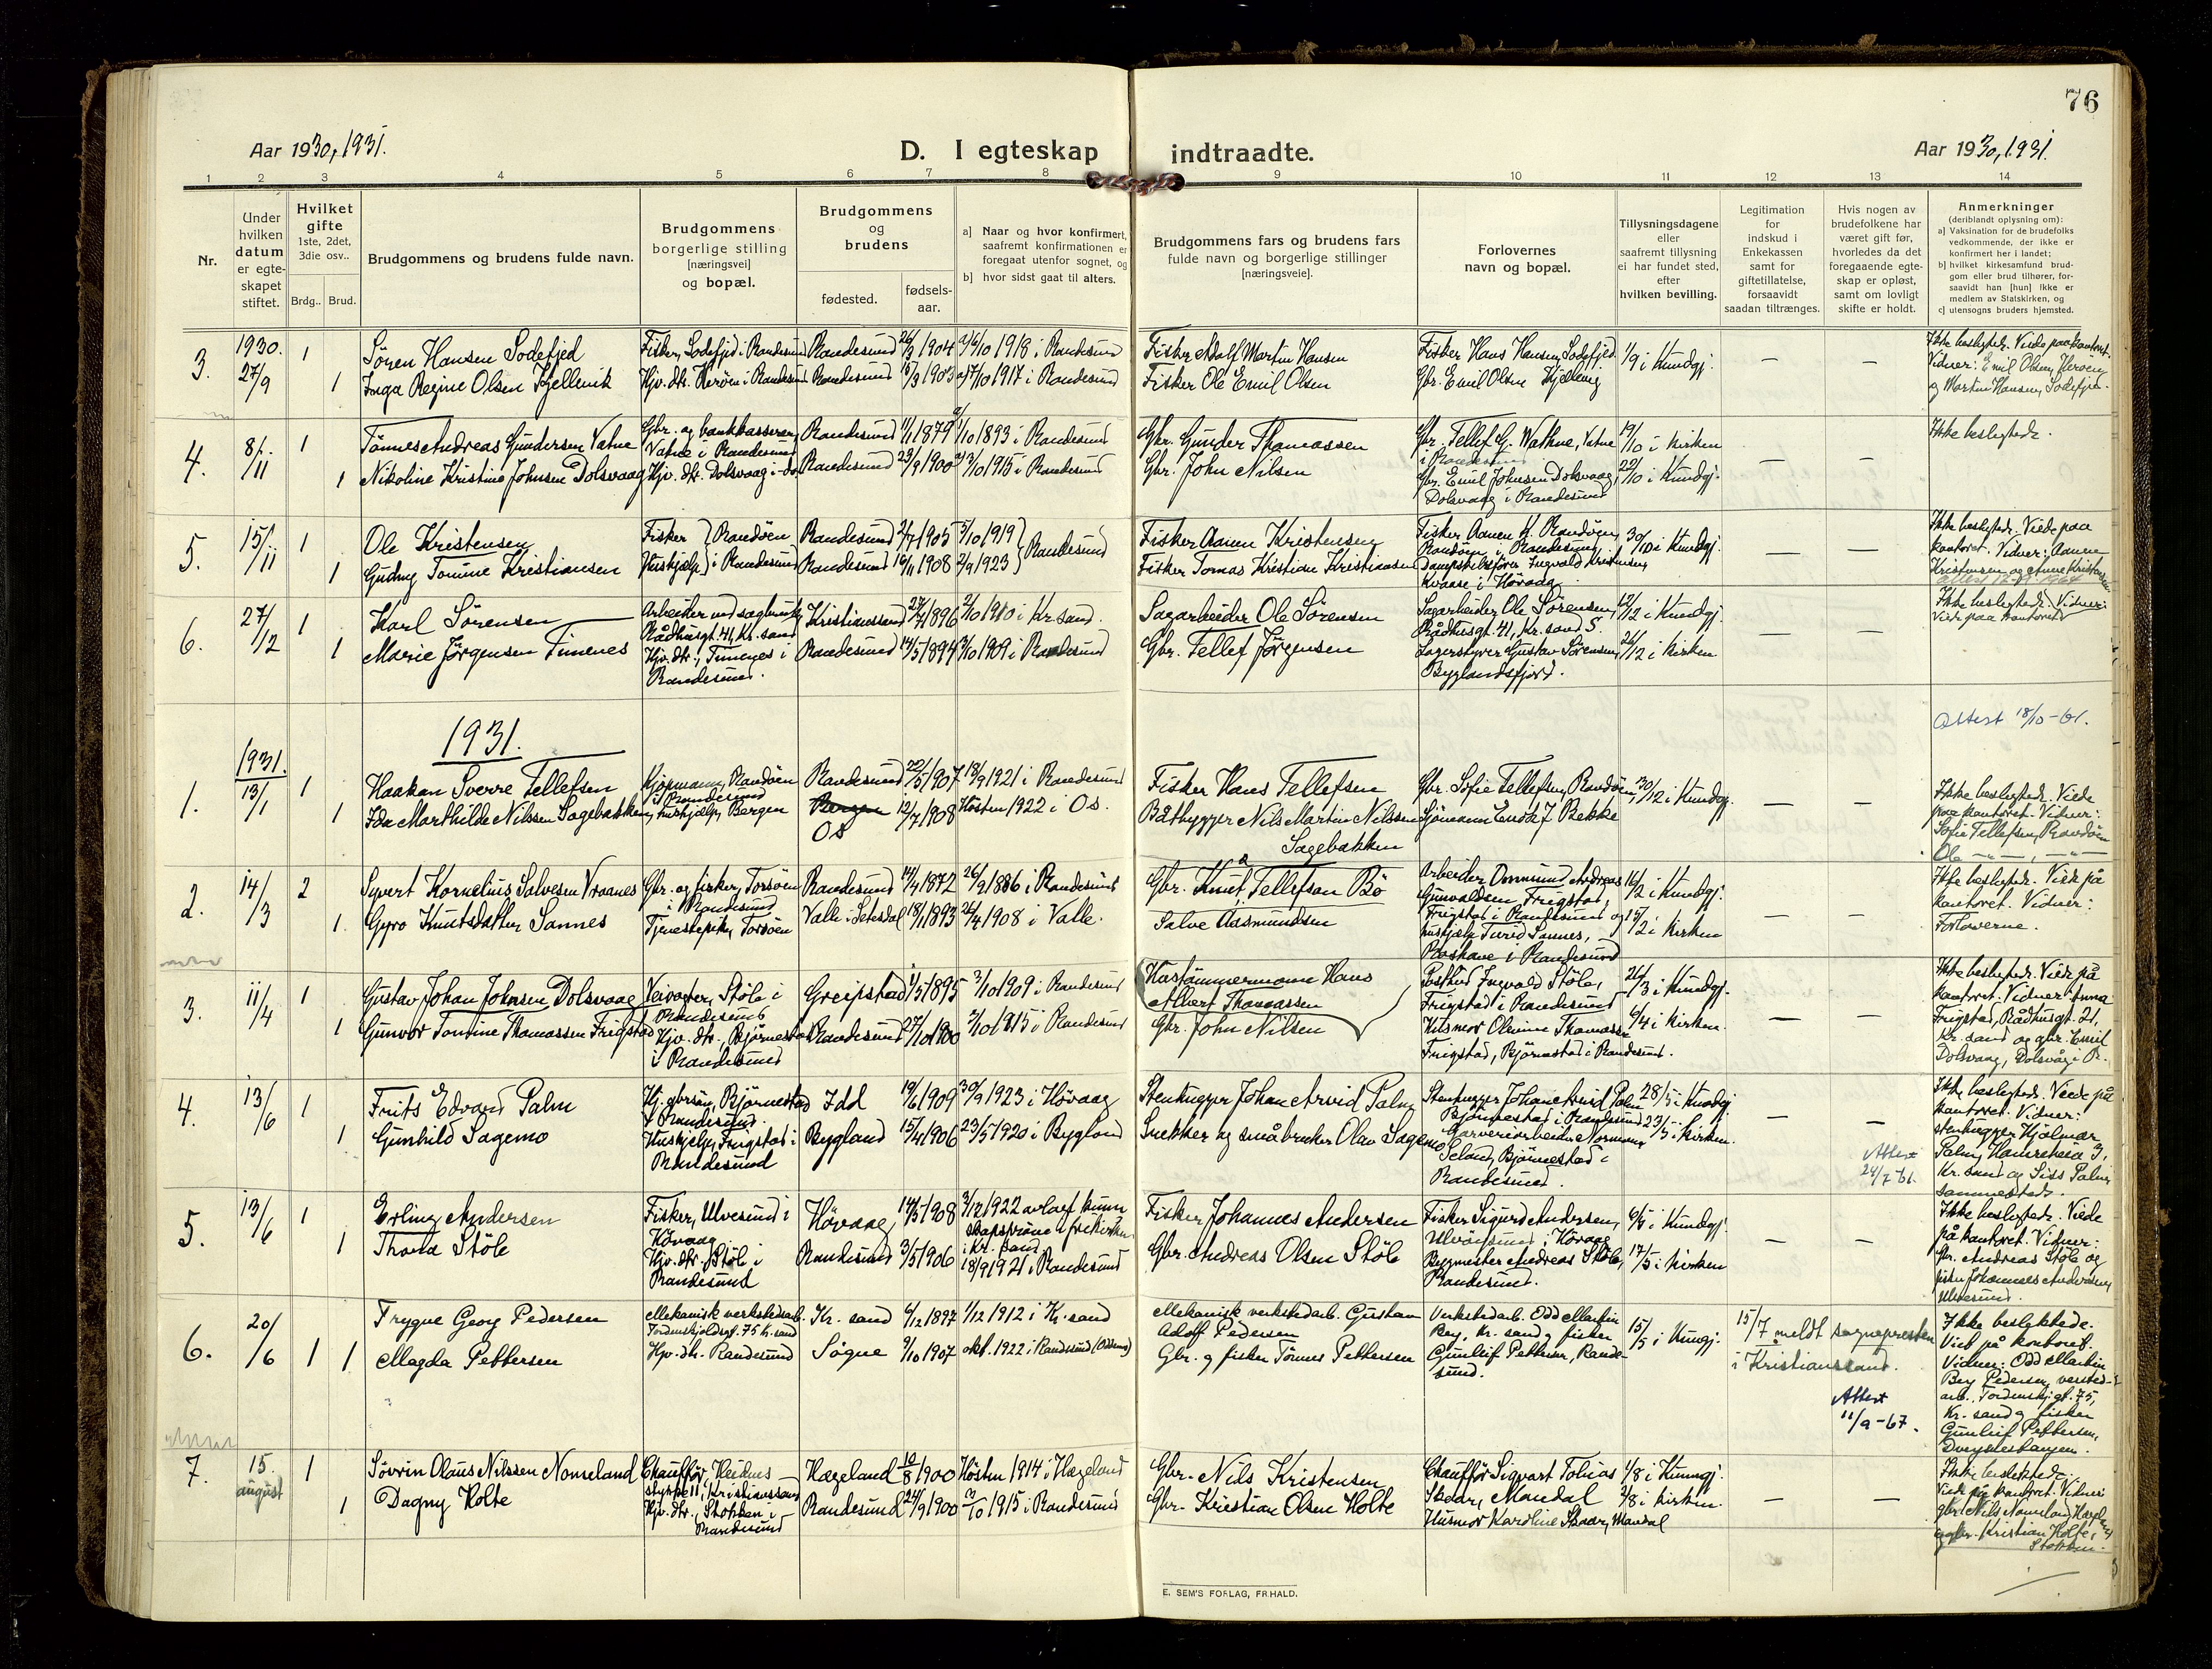 76
Aar 1930, 1931.
D. I egteskap indtraadte.
Aar 1930, 1931.
1 2 3 4 5 6 7 8 9 10 11 12 13 14
Nr.
Under hvilken datum er egteskapet stiftet.
Hvilket gifte
1ste, 2det, 3die osv..
Brdg.. Brud.
Brudgommens og brudens fulde navn.
Brudgommens borgerlige stilling [næringsvei] og bopæl.
Brudgommens og brudens
fødested.
fødselsaar.
a] Naar og hvor konfirmert, saafremt konfirmationen er foregaat utenfor sognet, og
b] hvor sidst gaat til alters.
Brudgommens fars og brudens fars fulde navn og borgerlige stillinger [næringsveie].
Forlovernes navn og bopæl.
Tillysningsdagene eller saafremt tillysning ei har fundet sted, efter hvilken bevilling.
Legitimation for indskud i Enkekassen samt for giftetillatelse, forsaavidt saadan tiltrænges.
Hvis nogen av brudefolkene har været gift før, hvorledes da det foregaaende egteskap er opløst, samt om lovligt skifte er holdt.
Anmerkninger
(deriblandt oplysning om):
a] Vaksination for de brudefolks vedkommende, der ikke er konfirmert her i landet;
b] hvilket kirkesamfund brudgom eller brud tilhører, forsaavidt han [hun] ikke er medlem av Statskirken, og
c] utensogns bruders hjemsted.
3. 1930. 27/9 1 Søren Hansen Sodefjed Fisker, Sodefjed i Randesund Randesund 26/3 1904 a) 6/10 1918 i Randesund Fisker Adolf Martin Hansen Fisker Hans Hansen, Sodefjed 1/9 i Kundgj. — — Ikke beslegtede. Viede paa kontoret.
1 Inga Regine Olsen Kjellevik Hjv. dtr. Herøen i Randesund Randesund 1903 a) 7/10 1917 i Randesund Fisker Ole Emil Olsen Gbr. Emil Olsen Kjellevig Vidner: Emil Olsen, Herøen og Martin Hansen, Sodefjed.
4. 8/11 1 Tønnes Andreas Gundersen Vatne Gbr. og bankkasserer, Vatne i Randesund Randesund 1/1 1879 1/10 1893 i Randesund Gbr. Gunder Thomassen Gbr. Tellef G. Wathne, Vatne i Randesund 19/10 i kirken — — Ikke beslegtede.
1 Nikoline Kristine Johnsen Dolsvaag Hjv. dtr. Dolsvaag i do Randesund 23/9 1900 a) 3/10 1915 i Randesund Gbr. John Nilsen Gbr. Emil Johnsen Dolsvaag, Dolsvaag i Randesund 22/10 i Kundgj.
5. 15/11 1 Ole Kristensen Fisker Randøen Randesund 2/7 1905 5/10 1919 Randesund Fisker Aanen Kristensen Fisker Aanen K. Randøen, Randøen i Randesund 30/10 i Kundgj. — — Ikke beslegtede. Viede paa kontoret. Vidner: Aanen
1 Gudny Tomine Kristiansen Huskjelp i Randesund Randesund 16/11 1908 2/9 1923 Fisker Tomas Kristian Kristiansen Dampskibsfører Ingvald Kristensen, Kvaase i Høvaag. Kristensen og Anne Kristensen
6. 27/12 1 Karl Sørensen Arbeider ved sagbruk, Rådhusgt. 41, Kr. sand Kristianssand 27/7 1896 2/10 1910 i Kr. sand. Sagarbeider Ole Sørensen Sagarbeider Ole Sørensen, Rådhusgt. 41, Kr. sand S. 12/12 i Kundgj. — — Ikke beslegtede. Vidner:
1 Marie Jørgensen Timenes Hjv. dtr., Timenes i Randesund. Randesund 14/5 1894 3/10 1909 i Randesund Gbr. Tellef Jørgensen Lagerstyrer Gustav Sørensen, Byglandsfjord. 26/12 i kirken Viede paa kontoret
1931.
Attest 18/10-61.
1. 1931. 13/1 1 Haakan Sverre Tellefsen Kjøpmann, Randøen i Randesund Randesund 22/5 1907 18/9 1921 i Randesund Fisker Hans Tellefsen Gbr. Sofie Tellefsen, Randøen, 30/12 i Kundgj. — — Ikke beslegtede. Viede paa kontoret. Vidner:
1 Ida Marthilde Nilssen Sagebakken, huskjelp, Bergen Bergen Os 12/7 1908 Høsten 1922 i Os. Båtbygger Nils Martin Nilssen Sagebakken Sjømann Bekke Sofie Tellefsen, Randøen Ole — " — , — " —
2. 14/3 2 Syvert Kornelius Salvesen Vraanes Gbr. og fisker, Torsøen i Randesund Randesund 14/4 1872 26/9 1886 i Randesund Gbr. Knut Tellefsen Bø Arbeider Ommund Andreas Gunvaldsen, Frigstad, Frigstad i Randesund og 16/2 i Kundgj. — — Ikke beslegtede. Viede på kontoret. Vidner:
1. Gyro Knutsdatter Sannes Tjenestepike, Torsøen Valle i Setesdal 18/11 1893 26/4 1908 i Valle. Salve Aasmundsen huskjelp Turid Sannes, i Randesund 15/2 i kirken Forloverne.
3. 11/4 1 Gustav Johan Johnsen Dolsvaag Veivogter, Støle i Randesund Greipstad 1/5 1895 3/10 1909 i Randesund Hustømmermann Hans Albert Thomassen Postbud Ingvald Støle, Frigstad i Randesund 26/3 i Kundgj. — — Ikke beslegtede. Viede på kontoret. Vidner: Anna Frigstad, Rådhusgt. 21,
1 Gunvor Tomine Thomassen Frigstad Hjv. dtr., Bjørnestad i Randesund Randesund 27/10 1900 2/10 1915 i Randesund Gbr. John Nilsen Husmor Olevine Thomassen Frigstad, Bjørnestad i Randesund. 6/4 i kirken. Kr. sand og gbr. Emil Dolsvaag, Dolsvåg i R.
4. 13/6 1 Frits Edvard Palm Hj. gbrsøn, Bjørnestad i Randesund. Idd 19/6 1909 30/9 1923 i Høvaag Stenhugger Johan Arvid Palm Stenhugger Johan Arvid Palm Bjørnestad i Randesund 28/5 i Kundgj. — — Ikke beslegtede. Viede på kontoret. Vidner: stenhugger Hjalmar
1 Gunhild Sagemo Huskjelp, Frigstad i Randesund Bygland 15/4 1906 23/5 1920 i Bygland Snekker og småbruker Olav Sagemo Garveriarbeider Normann Seland, Bjørnestad i Randesund. 23/5 i kirken. Attest 24/7 61. Palm, Hamreheia 3, Kr. sand og Siss Palm sammesteds.
5. 13/6 1 Erling Andersen Fisker, Ulvesund i Høvaag Høvaag 14/5 1908 3/12 1922 avlagt kunnskapsprøve i frikirken i Kr. sand Fisker Johannes Andersen Fisker Sigurd Andersen, Ulvøysund i Høvaag i Kundgj. — — Ikke beslegtede. Viede på kontoret. Vidner:
1 Thora Støle Hjv. dtr. Støle i Randesund Randesund 3/5 1906 18/9 1921 i Randesund Gbr. Andreas Olsen Støle Bygmester Andreas Støle, Randesund. 17/5 i kirken Gbr. Andreas Støle og fisker Johannes Andersen, Ulvesund.
6. 20/6 1 Trygve Georg Pedersen Mekanisk verkstedsarb. Tordenskjoldsgt. 75 Kr. sand Kr. sand 6/12 1897 1/12 1912 i Kr. sand Mekanisk verkstedarb. Gustav Adolf Pedersen Verkstedarb. Odd Martin Berg, Kr. sand og fisker 15/5 i Kungj. 15/7 meldt sognepresten i Kristianssand. Ikke beslektede. Vied på kontoret. Vidner: Odd Martin
1 Magda Pettersen Hjv. dtr. Randesund Søgne 9/10 1907 okt. 1922 i Randesund Gbr. og fisker Tønnes Pettersen Gunleif Pettersen, Randesund. Attest 11/9-67. Berg Pedersen, verksted-arb. Tordenskj. gt. 75, Kr. sand og fisker Gunleif Pettersen, Dvergsnestangen.
7. 15. august 1 Søvrin Olaus Nilssen Nomeland Chauffør, Kristianssand Hægeland 10/8 1900 Høsten 1914 i Hægeland Gbr. Nils Kristensen Chauffør Sigvart Tobias Skaar, Mandal 1/8 i Kunngj. — — Ikke beslektede. Viede på kontoret. Vidner:
1 Dagny Holte Hjv. dtr., Stokken i Randesund Randesund 24/9 1900 1915 i Randesund Gbr. Kristian Olsen Holte Husmor Karoline Skaar, Mandal 2/8 i kirken. gbr. Nils Nomeland, og gbr. Kristian Holte, Stokken.
E. SEM'S FORLAG, FR.HALD.